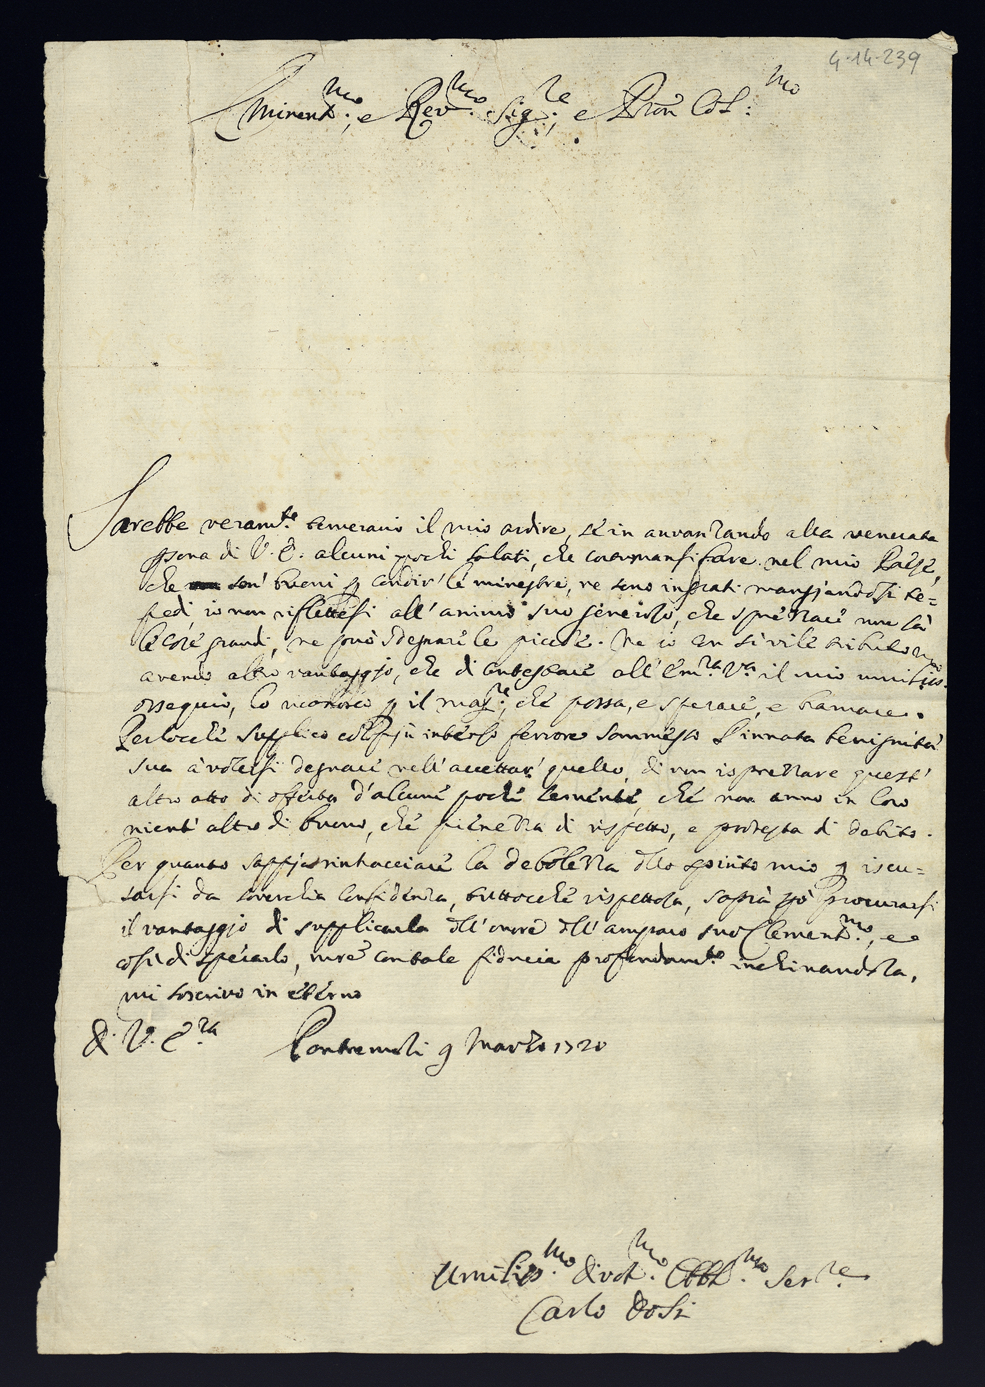 4-14-239
Eminent.mo, e Rev.mo Sig.re, e Pron Col.mo
Sarebbe veram.te temerario il mio ardire, se in avvanzando alla venerata
psona di V. E. alcuni pochi salati, che costumansi fare nel mio Paese,
che son' buoni p condir' le minestre, ne sono ingrati mangiandosi te=
pedi, io non riflettessi all' animo suo generoso, che sprezzare non sà
le cose grandi, ne può sdegnare le piccole. Ne io con sì vile tributo
avendo altro vantaggio, che di attestare all' Em.za V.a il mio umiliss.mo
ossequio, lo riconosco p il mag.re, che possa, e sperare, e bramare.
Perloche supplico col più intenso fervore sommesso l'innata benignità
sua à volersi degnare nell' accettar' quello, di non isprezzare quest'
altro atto di offerta d'alcune poche semente, che non anno in loro
nient' altro di buono, che pienezza di rispetto, e protesta di debito.
Per quanto sappia rintracciare la debolezza dllo spirito mio p iscu=
sarsi da soverchia confidenza, tuttoche rispettosa, saprà pò procurarsi
il vantaggio di supplicarla dll' onore dll' amparo suo Clement.mo, e
così di sperarlo, mre con tale fiducia profondam.te inchinandola,
mi soscrivo in eterno
di V. E.za Pontremoli 9 Marzo 1720
Umiliss.mo Divot.mo Obbl.mo Ser.re
Carlo Dosi